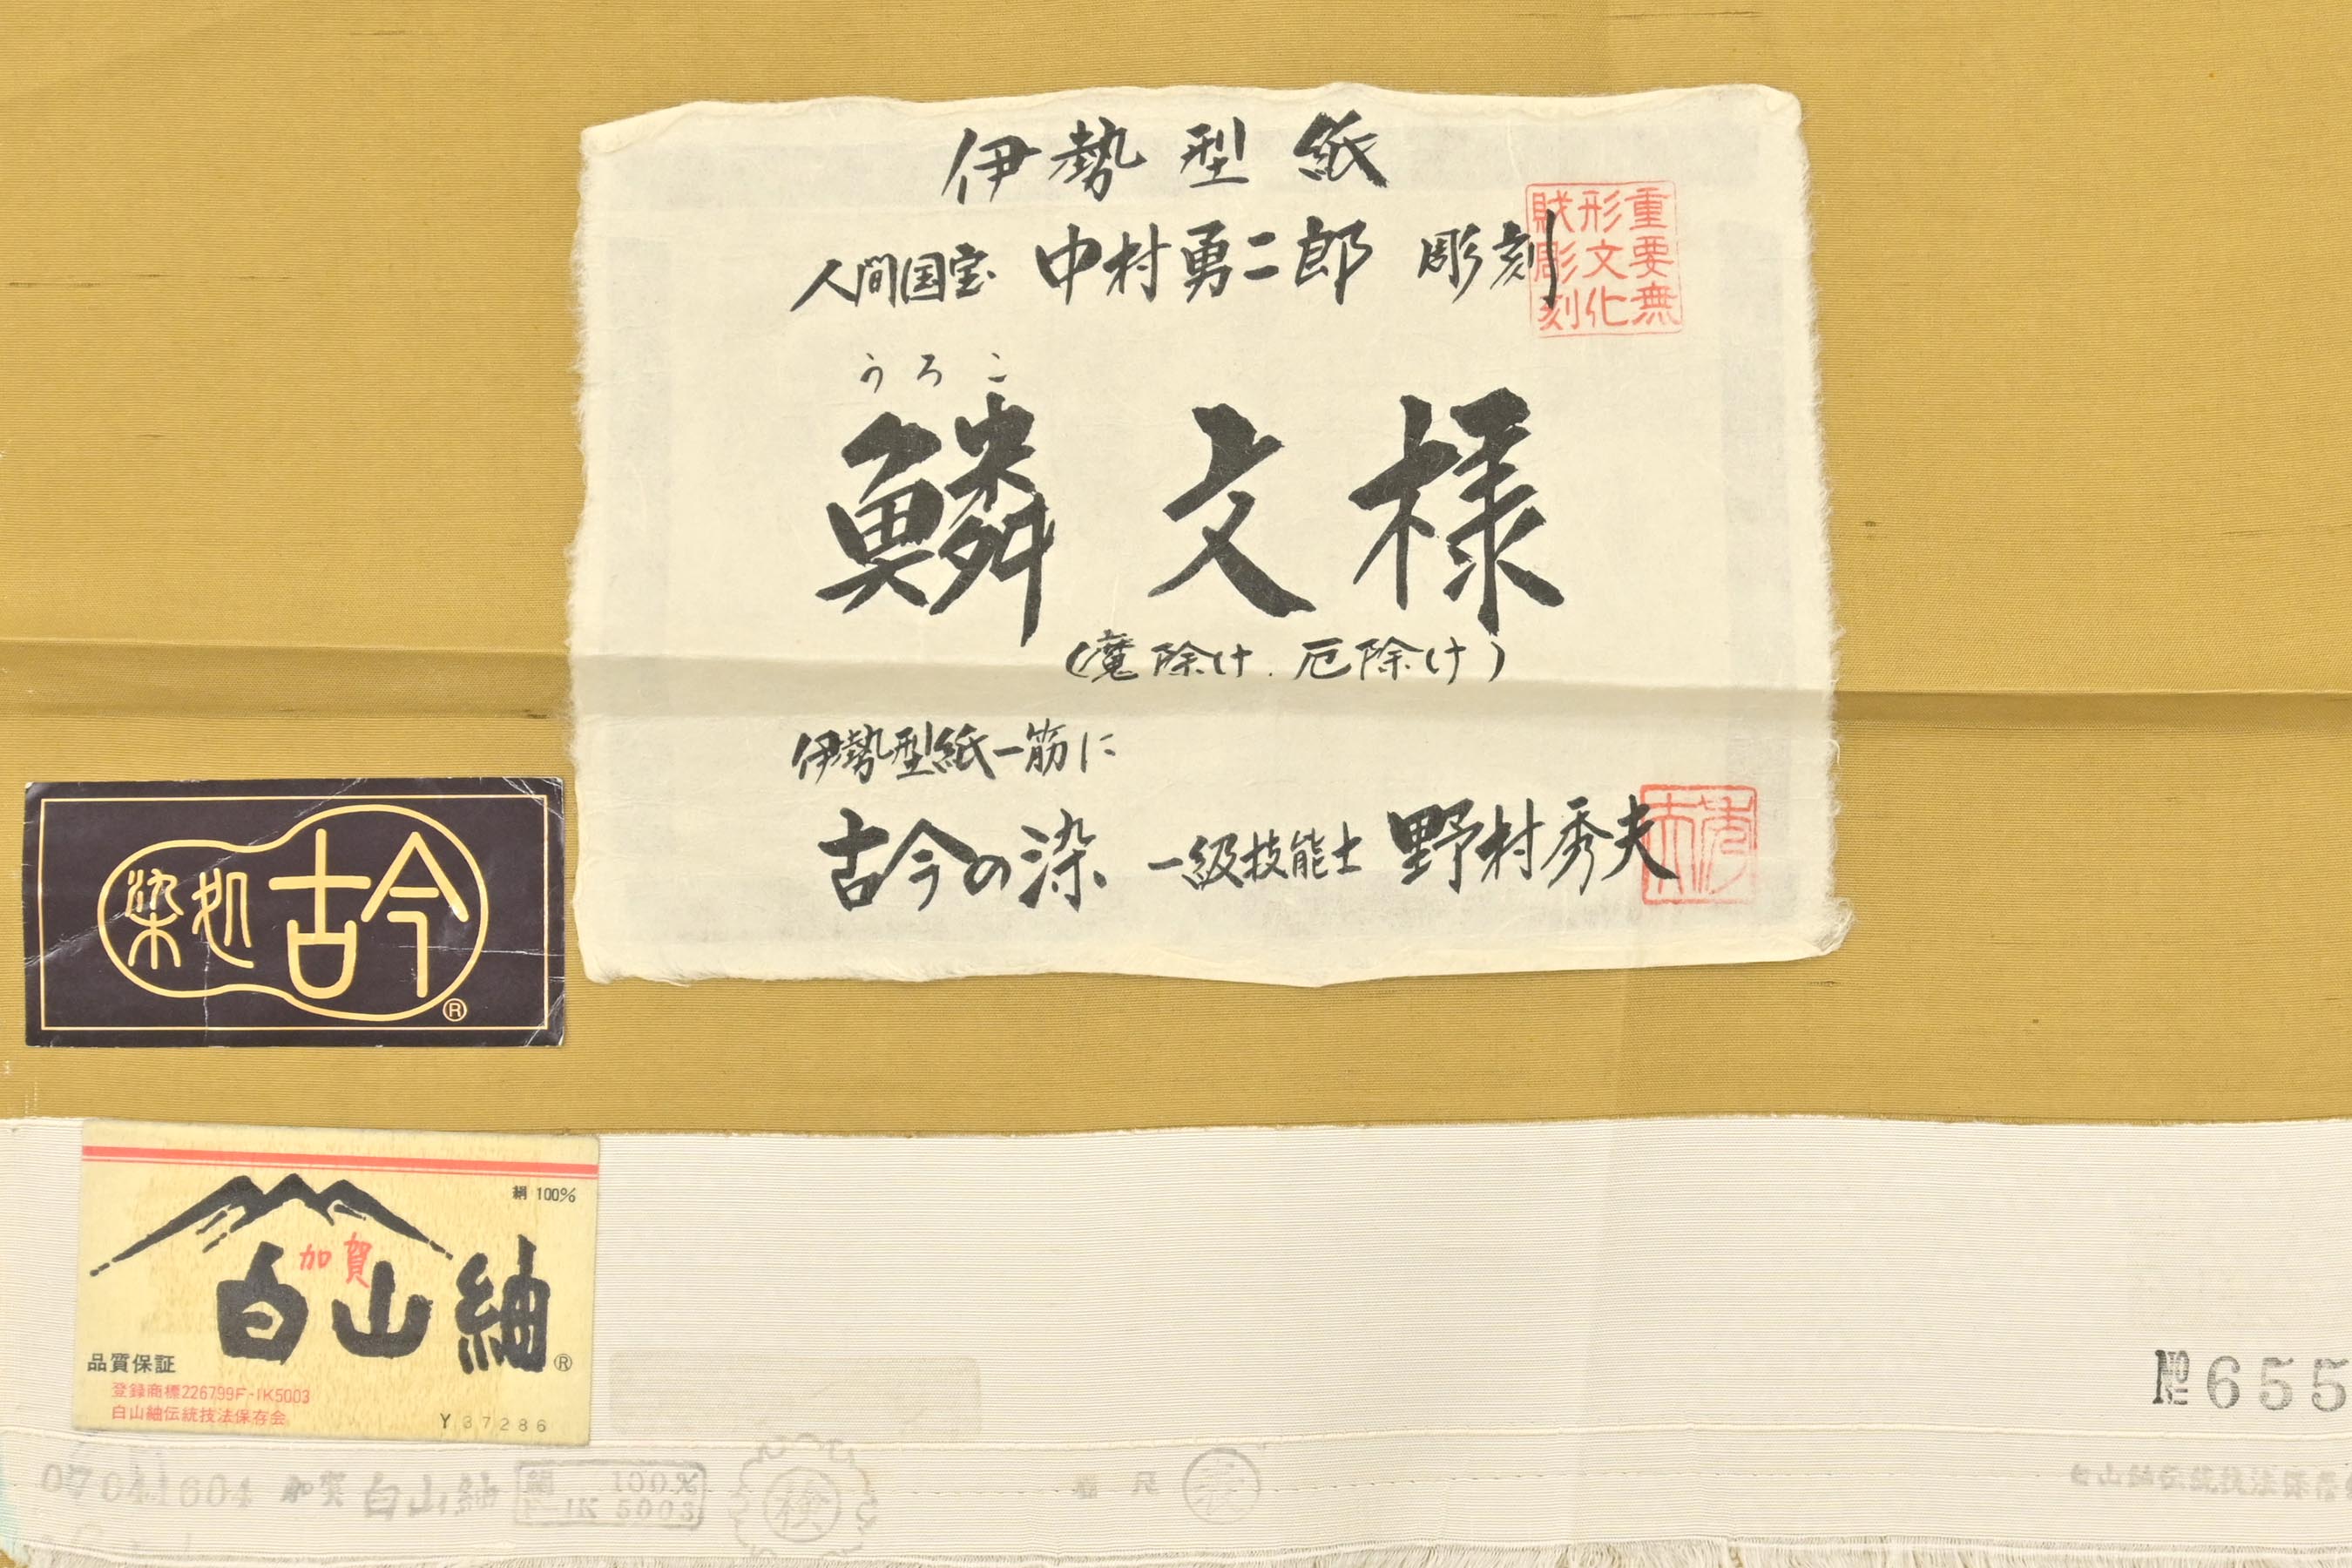 伊勢型紙
人間国宝 中村勇二郎 彫刻
重要無
形文化
財彫刻
うろこ
鱗文様
(魔除け.厄除け)
伊勢型紙一筋に
古今の染 一級技能士 野村秀夫
染処古今
®
絹100%
加賀
白山紬®
品質保証
登録商標226799F-IK5003
白山紬伝統技法保存会
Y37286
№655
0704604 加賀 白山紬
絹 100%
IK 5003
検
表
白山紬伝統技法保存